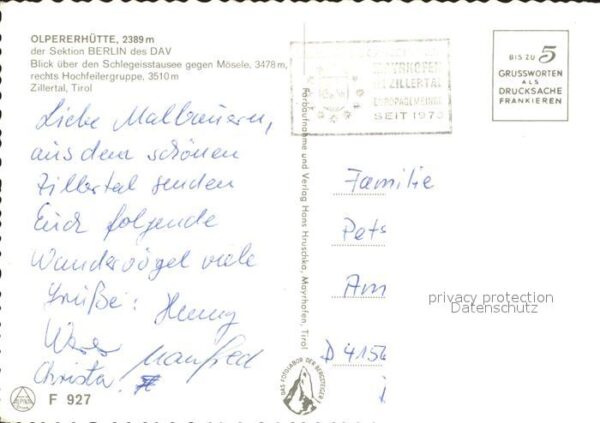 OLPERERHÜTTE, 2389 m
der Sektion BERLIN des DAV
Blick über den Schlegeisstausee gegen Mösele, 3478 m,
rechts Hochfeilergruppe, 3510 m
Zillertal, Tirol
Liebe Malbauern,
aus dem schönen
Zillertal senden
Euch folgende
Wandervögel viele
Grüße: Henny
Manfred
Christa
F 927
MAYRHOFEN
ZILLERTAL
EUROPAGEMEINDE
SEIT 1973
BIS ZU 5
GRUSSWORTEN
ALS
DRUCKSACHE
FRANKIEREN
Farbaufnahme und Verlag Hans Hruschka, Mayrhofen, Tirol
DAS FOTOLABOR DER BERGSTEIGER
Familie
Pet
Am
D 4156
privacy protection
Datenschutz